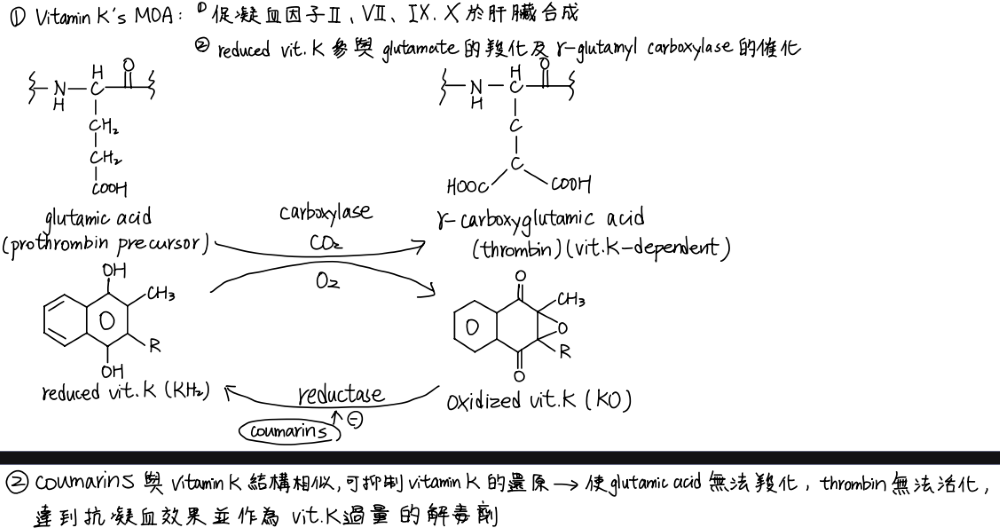 ① Vitamin K's MOA: ① 促凝血因子Ⅱ、Ⅶ、Ⅸ.Ⅹ於肝臟合成
② reduced vit.K 參與 glutamate 的羧化及 γ-glutamyl carboxylase 的催化
H O
N C
H
CH₂
CH₂
COOH
H O
N C
H
C
C
HOOC COOH
glutamic acid
(prothrombin precursor)
carboxylase
CO₂
O₂
γ-carboxyglutamic acid
(thrombin)(vit.K-dependent)
OH
CH₃
R
OH
reduced vit.K (KH₂)
O
CH₃
O
R
O
oxidized vit.K (KO)
reductase
coumarins ↑ ⊖
② coumarins 與 vitamin K 結構相似,可抑制 vitamin K 的還原 → 使 glutamic acid 無法羧化, thrombin 無法活化,
達到抗凝血效果並作為 vit.K過量的解毒劑